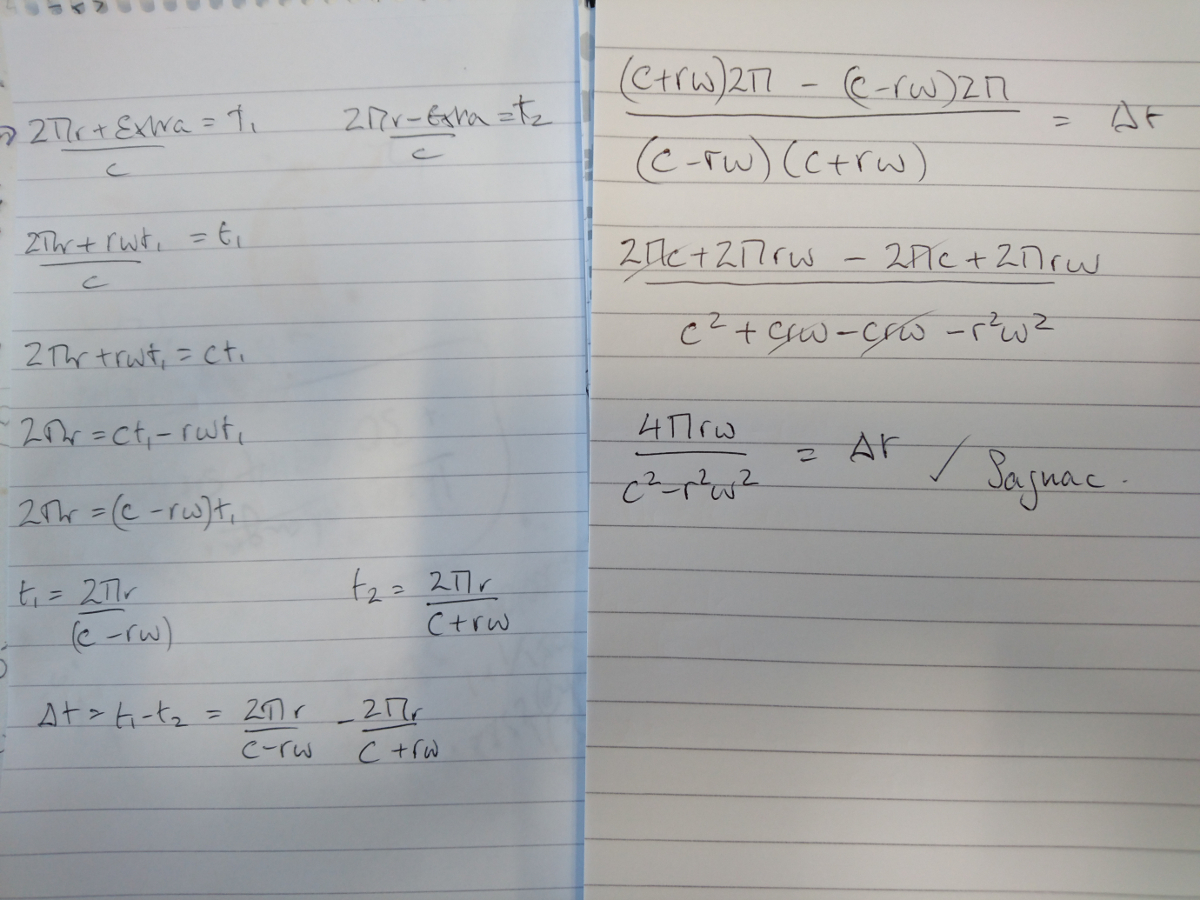 (2Πr + Extra)/c = t₁    (2Πr - Extra)/c = t₂
(2Πr + rwt₁)/c = t₁
2Πr + rwt₁ = ct₁
2Πr = ct₁ - rwt₁
2Πr = (c - rw)t₁
t₁ = 2Πr/(c - rw)    t₂ = 2Πr/(c + rw)
Δt = t₁ - t₂ = 2Πr/(c - rw) - 2Πr/(c + rw)
((c + rw)2Π - (c - rw)2Π)/((c - rw)(c + rw)) = Δt
(2Πc + 2Πrw - 2Πc + 2Πrw)/(c² + crw - crw - r²w²)
4Πrw/(c² - r²w²) = Δt ✓ Sagnac.